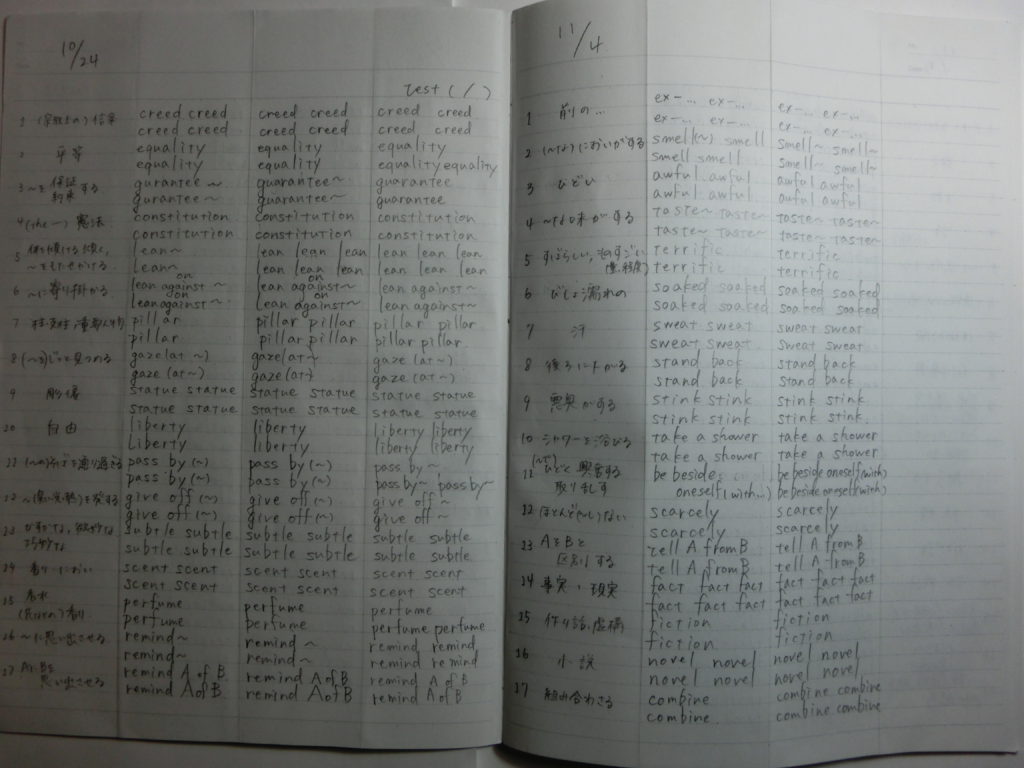 10/24
test ( / )
1 creed creed creed creed creed creed
creed creed creed creed creed creed
2 平等 equality equality equality
equality equality equality equality
3 ～を保証 gurantee ～ guarantee～ guarantee
約束する gurantee～ guarantee～ guarantee
4 (the ー) 憲法 constitution constitution constitution
constitution constitution constitution
5 lean～ lean lean lean lean lean lean
lean～ lean lean lean lean lean lean
6 ～に寄り掛かる lean against～ lean against～ lean against～
on on
lean against～ lean against～ lean against～
on on
7 pillar pillar pillar pillar pillar
pillar pillar pillar pillar pillar
8 (～を)じっと見つめる gaze(at ～) gaze(at～ gaze (at～)
gaze (at～) gaze(at) gaze (at～)
9 彫像 statue statue statue statue statue statue
statue statue statue statue statue statue
10 自由 liberty liberty liberty liberty
liberty liberty liberty liberty
11 pass by(～) pass by (～) pass by ～
pass by (～) pass by (～) pass by～ pass by～
12 give off (～) give off(～) give off ～
give off (～) give off (～) give off ～
13 subtle subtle subtle subtle subtle subtle
subtle subtle subtle subtle subtle subtle
14 香り・におい scent scent scent scent scent scent
scent scent scent scent scent scent
15 香水 perfume perfume perfume
香り perfume perfume perfume perfume
16 ～に思い出させる remind～ remind ～ remind remind
remind～ remind～ remind remind
17 AにBを remind A of B remind A of B remind A of B
思い出させる remind A of B remind A of B remind A of B
11/4
1 前の… ex-… ex-… ex-… ex-…
ex-… ex-… ex-… ex-…
2 (～な)においがする smell(～) smell smell～ smell～
smell smell smell～ smell～
3 ひどい awful awful awful awful
awful awful awful awful
4 ～な味がする taste～ taste～ taste～ taste～
taste～ taste～ taste～ taste～
5 すばらしい、ものすごい terrific terrific
terrific terrific
6 びしょ濡れの soaked soaked soaked soaked
soaked soaked soaked soaked
7 汗 sweat sweat sweat sweat
sweat sweat sweat sweat
8 後ろに下がる stand back stand back
stand back stand back
9 悪臭がする stink stink stink stink
stink stink stink stink
10 シャワーを浴びる take a shower take a shower
take a shower take a shower
11 ひどく興奮する be beside be beside oneself(with)
取り乱す oneself (with…) be beside oneself(with)
12 ほとんど(～し)ない scarcely scarcely
scarcely scarcely
13 AをBと tell A from B tell A from B
区別する tell A from B tell A from B
14 事実・現実 fact fact fact fact fact fact
fact fact fact fact fact fact
15 作り話、虚構 fiction fiction
fiction fiction
16 小説 novel novel novel novel
novel novel novel novel
17 組み合わさる combine combine combine
combine combine combine